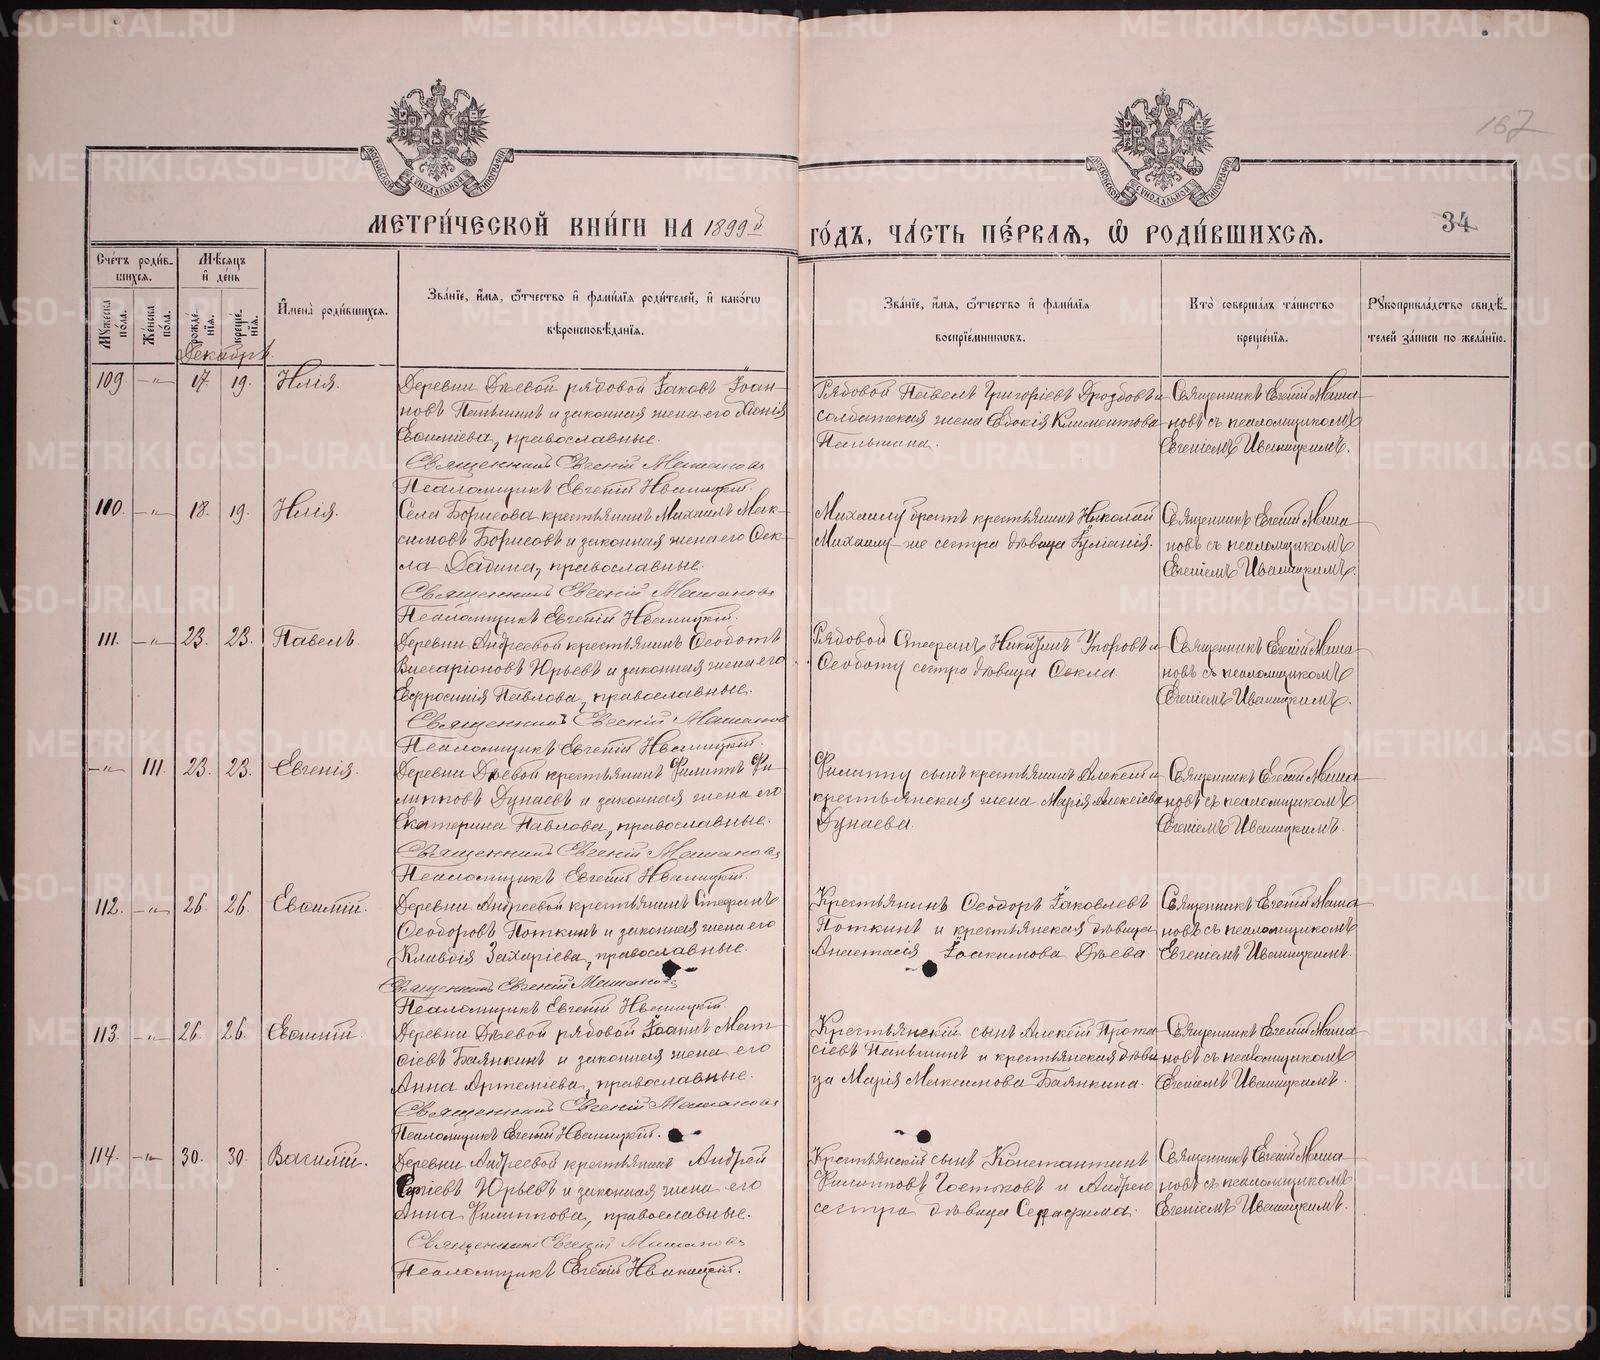 METRIKI.GASO-URAL.RU
167
МОСКОВСКОЙ СѴНОДАЛЬНОЙ ТИПОГРАФІИ
МЕТРИ́ЧЕСКОЙ КНИ́ГИ НА 1899й ГО́ДЪ, ЧА́СТЬ ПЕ́РВАЯ, Ѡ РОДИ́ВШИХСЯ.
34
Сче́тъ роди́вшихся.
Мѣ́сяцъ и де́нь
Му́жеска по́ла.
Же́нска по́ла.
рожде́нїя.
креще́нїя.
Имена̀ роди́вшихся.
Зва́нїе, и́мя, о́тчество и фами́лїя роди́телей, и како́гѡ
вѣроисповѣ́данїя.
Зва́нїе, и́мя, о́тчество и фами́лїя
воспрїе́мниковъ.
Кто̀ соверша́лъ та́инство
креще́нїя.
Рукоприкла́дство свидѣ́-
телей за́писи по жела́нїю.
Декабрь
109 -"- 17. 19. Илія.
Деревни Дѣевой рядовой Іаковъ Іоан-
новъ Паньшинъ и законная жена его Ксенія
православные.
Священникъ Евгеній
Псаломщикъ Евгеній Иваницкій.
Рядовой Павелъ Григоріевъ Дроздовъ и
солдатская жена Евдокія Климентова
Паньшина.
Священникъ Евгеній Маша-
новъ съ псаломщикомъ
Евгеніемъ Иваницкимъ.
110. -"- 18. 19. Илія.
Села Борисова крестьянинъ Михаилъ Мак-
симовъ Борисовъ и законная жена его Ѳек-
ла православные.
Священникъ Евгеній
Псаломщикъ Евгеній Иваницкій.
Михаилу братъ крестьянинъ Николай
Михаилу-же сестра дѣвица Іуліанія.
Священникъ Евгеній Маша-
новъ съ псаломщикомъ
Евгеніемъ Иваницкимъ.
111. -"- 23. 23. Павелъ.
Деревни Андреевой крестьянинъ Ѳеодотъ
Виссаріоновъ Юрьевъ и законная жена его
Евфросинія Павлова, православные.
Священникъ Евгеній
Псаломщикъ Евгеній Иваницкій.
Рядовой Стефанъ и
Ѳеодоту сестра дѣвица Ѳекла
Священникъ Евгеній Маша-
новъ съ псаломщикомъ
Евгеніемъ Иваницкимъ.
-"- 111. 23. 23. Евгенія.
Деревни Дѣевой крестьянинъ Филиппъ Фи-
липповъ Дунаевъ и законная жена его
Екатерина Павлова, православные.
Священникъ Евгеній
Псаломщикъ Евгеній Иваницкій.
Филиппу сынъ крестьянинъ Алексій и
крестьянская жена Марія Алексіева
Дунаева.
Священникъ Евгеній Маша-
новъ съ псаломщикомъ
Евгеніемъ Иваницкимъ.
112. -"- 26. 26. Евѳимій.
Деревни Андреевой крестьянинъ Стефанъ
Ѳеодоровъ Поткинъ и законная жена его
Клавдія Захаріева, православные.
Священникъ Евгеній
Псаломщикъ Евгеній Иваницкій.
Крестьянинъ Ѳеодоръ Іаковлевъ
Поткинъ и крестьянская дѣвица
Анастасія Іоакимова Дѣева
Священникъ Евгеній Маша-
новъ съ псаломщикомъ
Евгеніемъ Иваницкимъ.
113. -"- 26. 26. Евѳимій.
Деревни Дѣевой рядовой Іоаннъ Мат-
ѳіевъ Баянкинъ и законная жена его
Анна Артеміева, православные.
Священникъ Евгеній
Псаломщикъ Евгеній Иваницкій.
Крестьянскій сынъ Алексій Прота-
сіевъ Паньшинъ и крестьянская дѣви-
ца Марія Максимова Баянкина.
Священникъ Евгеній Маша-
новъ съ псаломщикомъ
Евгеніемъ Иваницкимъ.
114. -"- 30. 30. Василій.
Деревни Андреевой крестьянинъ Андрей
Сергіевъ Юрьевъ и законная жена его
Анна Филиппова, православные.
Священникъ Евгеній
Псаломщикъ Евгеній Иваницкій.
Крестьянскій сынъ Константинъ
Филипповъ и Андрею
сестра дѣвица Серафима.
Священникъ Евгеній Маша-
новъ съ псаломщикомъ
Евгеніемъ Иваницкимъ.